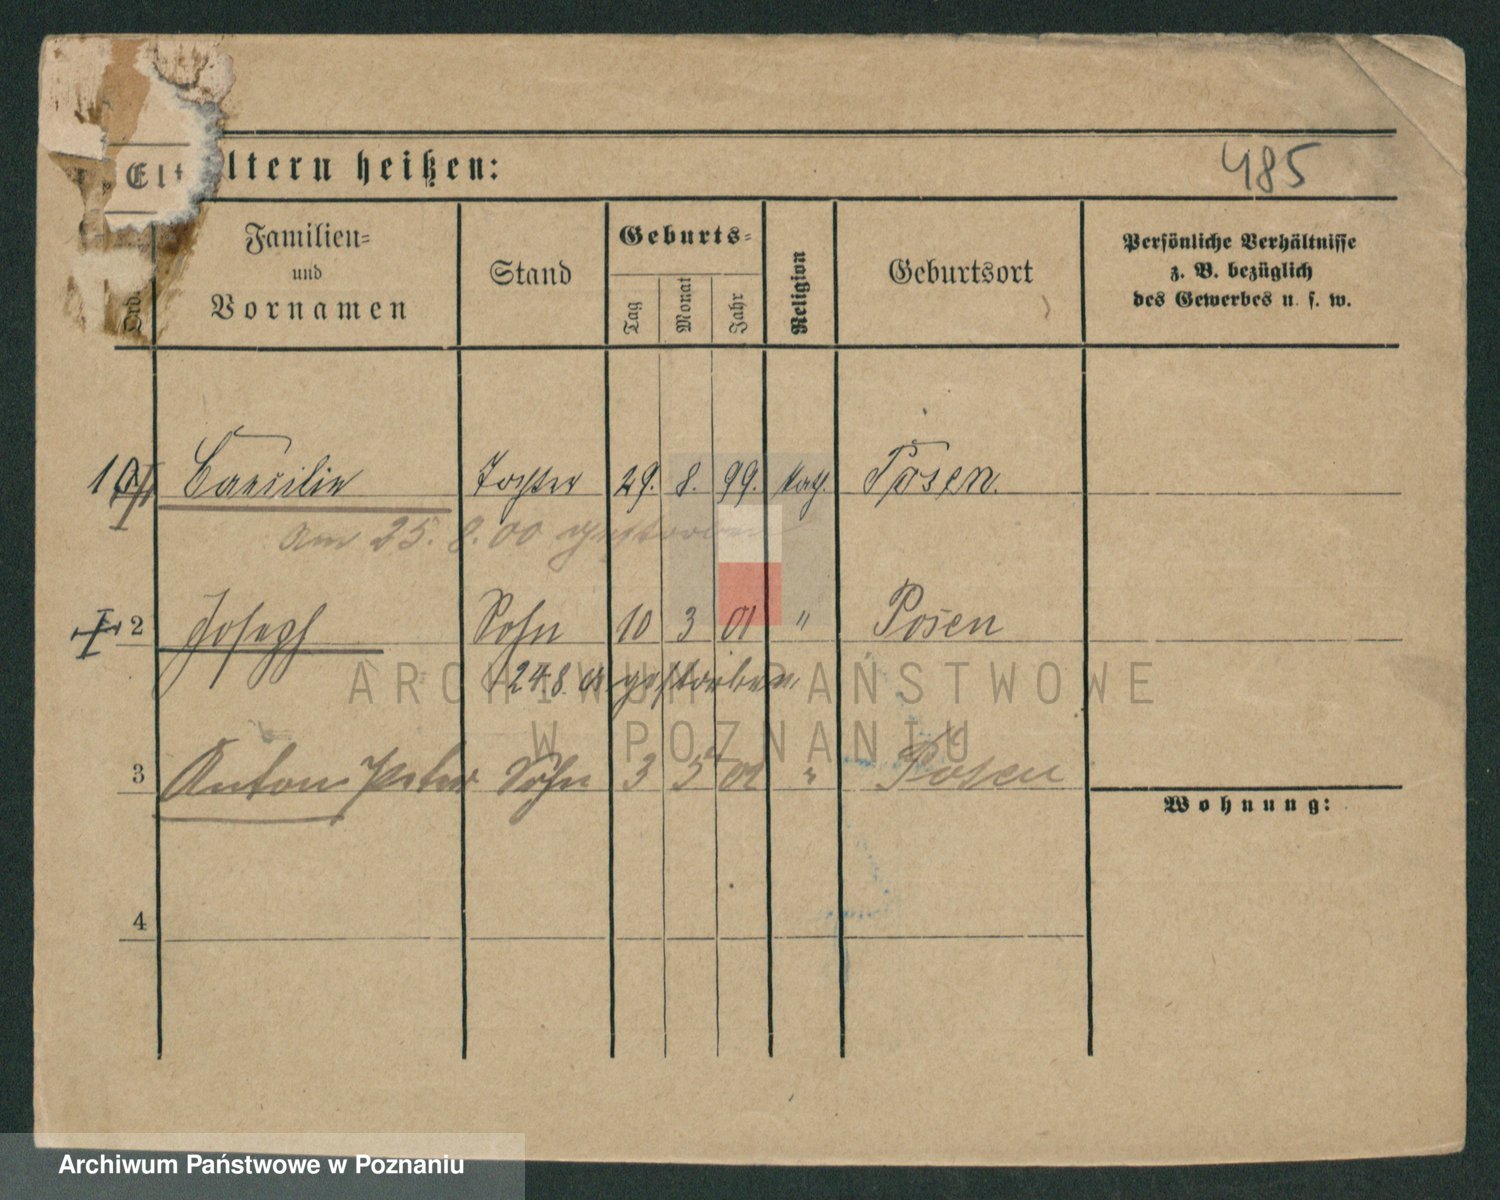 485
Eltern heißen:
Familien- und Vornamen
Stand
Geburts-
Tag
Monat
Jahr
Religion
Geburtsort
Persönliche Verhältnisse
z. B. bezüglich
des Gewerbes u. s. w.
1 Caecilie Tochter 29. 8. 99. kath. Posen.
am 25. 8. 00 gestorben
2 Joseph Sohn 10 3 01 " Posen
24 8. 01 gestorben.
3 Anton Peter Sohn 3 5 02 " Posen
Wohnung:
4
ARCHIWUM PAŃSTWOWE
W POZNANIU
Archiwum Państwowe w Poznaniu